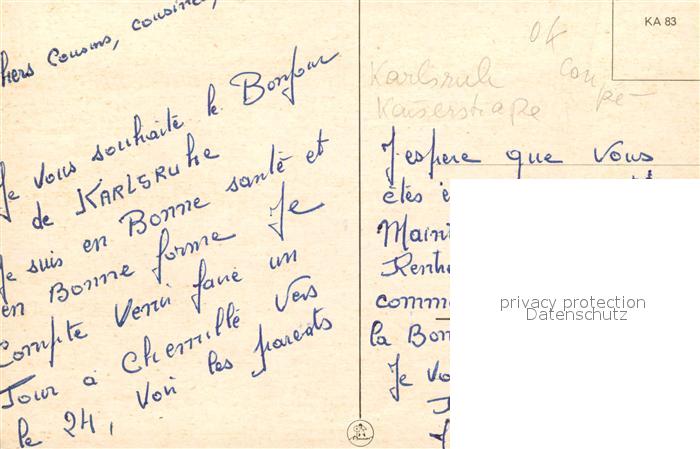 hers Cousins, cousines,
Je vous souhaite le Bonjour
de KARLSRuhe
Je suis en Bonne santé et
en Bonne forme Je
Compte Venir faire un
Tour a Chemillé Vers
le 24, voir les parents
KA 83
OK
Karlsruh
Coupé
Kaiserstraße
J'espere que Vous
étés e
Maint
Rentr
comm
la Bon
Je vo
privacy protection
Datenschutz